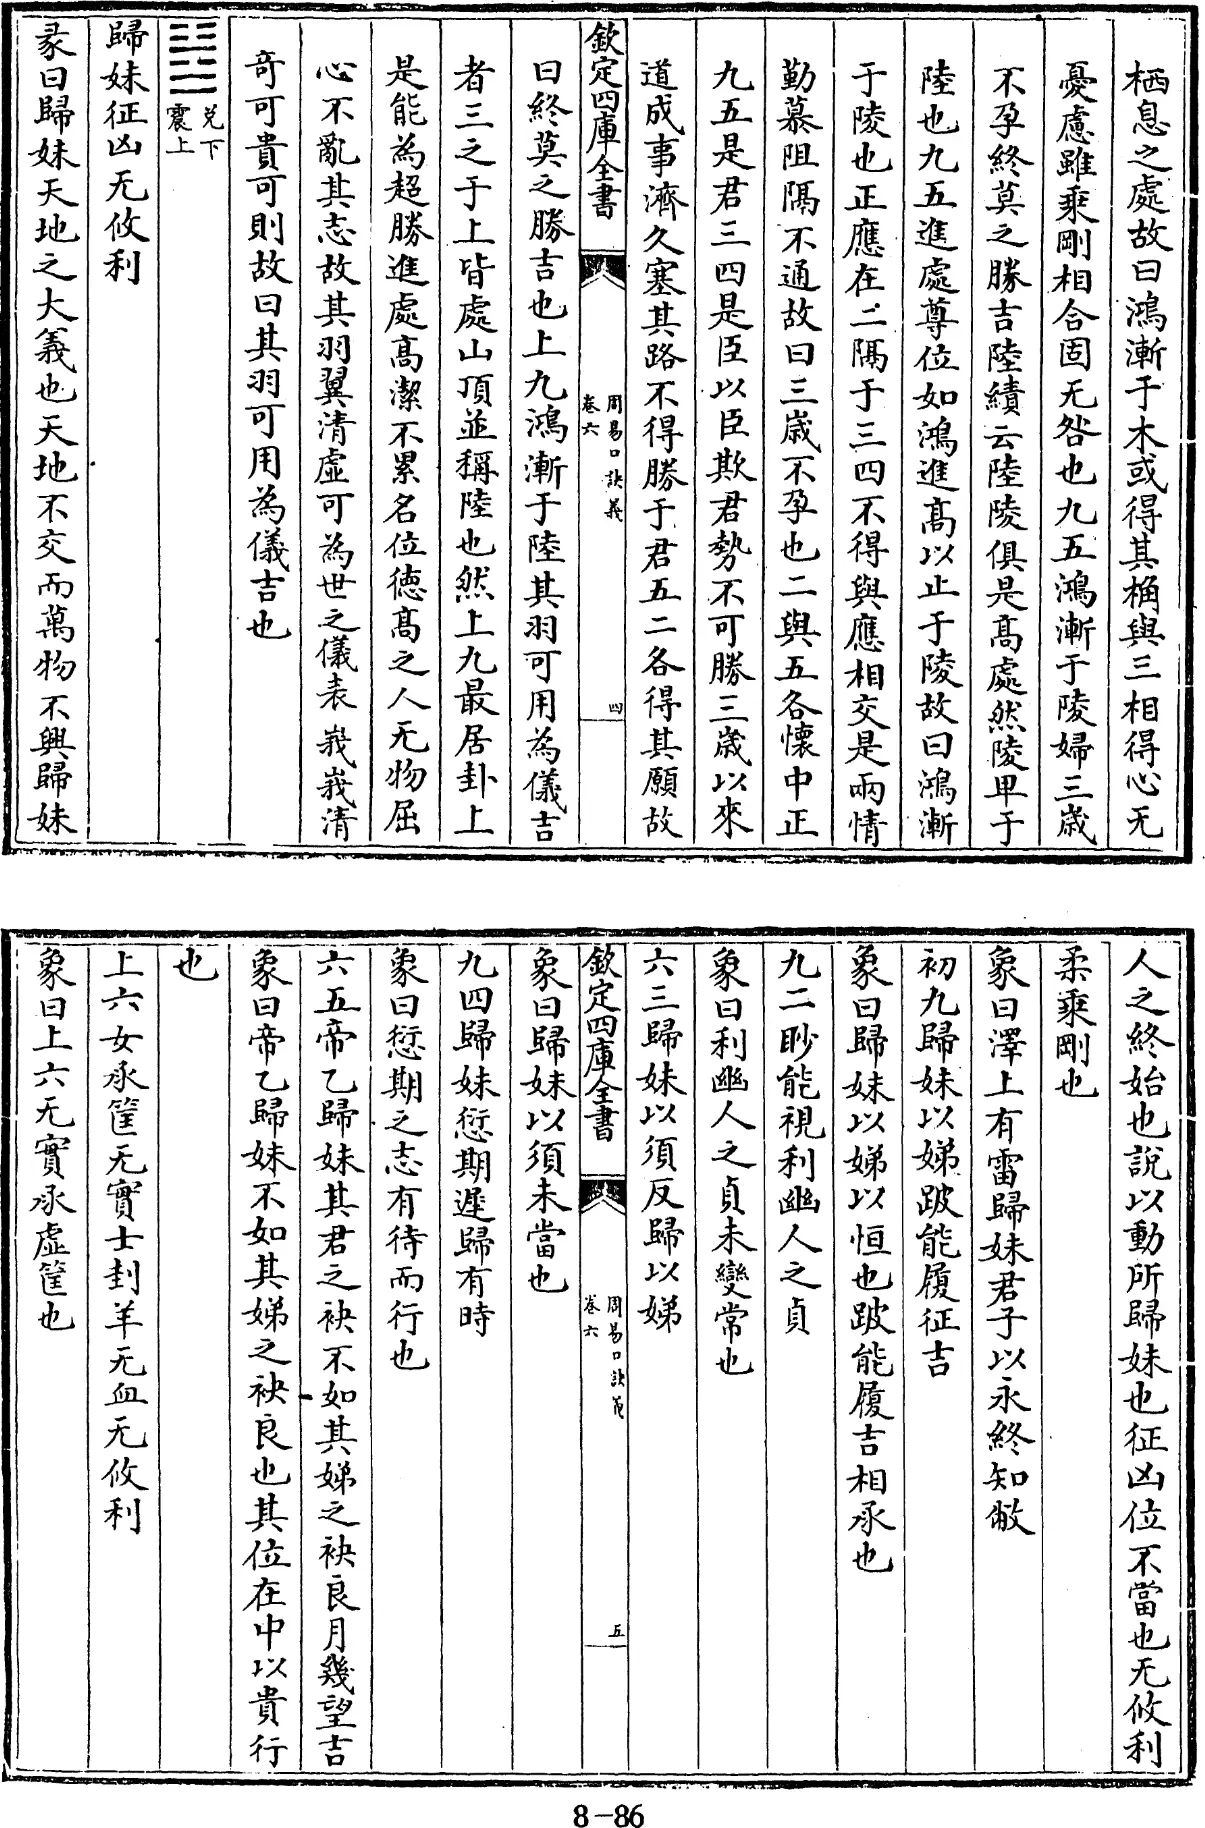 栖息之處故曰鴻漸于木或得其桷與三相得心无
憂慮雖乘剛相合固无咎也九五鴻漸于陵婦三歳
不孕終莫之勝吉陸績云陸陵俱是髙處然陵卑于
陸也九五進處尊位如鴻進髙以止于陵故曰鴻漸
于陵也正應在二隔于三四不得與應相交是兩情
勤慕阻隔不通故曰三歳不孕也二與五各懐中正
九五是君三四是臣以臣欺君勢不可勝三歳以來
道成事濟久塞其路不得勝于君五二各得其願故
欽定四庫全書
周易口訣義
卷六
四
曰終莫之勝吉也上九鴻漸于陸其羽可用為儀吉
者三之于上皆處山頂並稱陸也然上九最居卦上
是能為超勝進處髙潔不累名位徳髙之人无物屈
心不亂其志故其羽翼清虛可為世之儀表峩峩清
竒可貴可則故曰其羽可用為儀吉也
兌下
震上
歸妹征凶无攸利
彖曰歸妹天地之大義也天地不交而萬物不興歸妹
人之終始也說以動所歸妹也征凶位不當也无攸利
柔乘剛也
象曰澤上有雷歸妹君子以永終知敝
初九歸妹以娣跛能履征吉
象曰歸妹以娣以恒也跛能履吉相承也
九二眇能視利幽人之貞
象曰利幽人之貞未變常也
六三歸妹以須反歸以娣
欽定四庫全書
周易口訣義
卷六
五
象曰歸妹以須未當也
九四歸妹愆期遲歸有時
象曰愆期之志有待而行也
六五帝乙歸妹其君之袂不如其娣之袂良月幾望吉
象曰帝乙歸妹不如其娣之袂良也其位在中以貴行
也
上六女承筐无實士刲羊无血无攸利
象曰上六无實承虛筐也
8-86